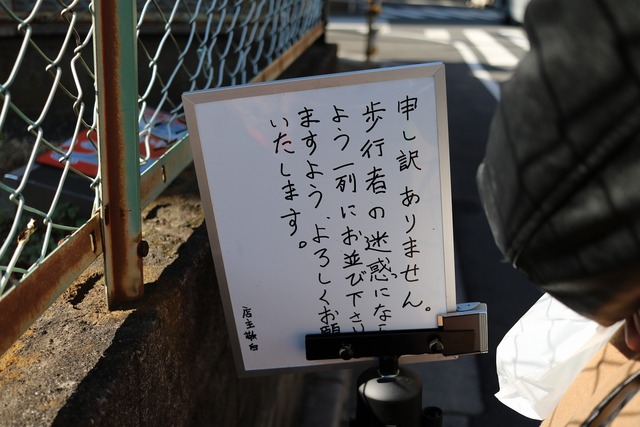 申し訳ありません。
歩行者の迷惑になら
よう一列にお並び下さい
ますよう、よろしくお願
いたします。
店主敬白